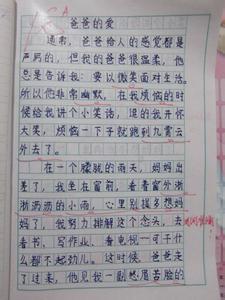 爸爸的爱
通常，爸爸给人的感觉都是
严厉的，但我的爸爸很温柔，他
总是告诉我：要以微笑面对生活。
所以他非常幽默，在我烦恼的时
候给我讲个小笑话，我的开怀
大笑，烦恼一下子就跑到九霄云
外去了。
在一个朦胧的雨天，妈妈出
差了，我坐在窗前，看着窗外淅
淅沥沥的小雨，心里别提多想妈
妈了，我努力排解这个念头，去
看书、写作业、看电视一可干什
么都不起劲儿。这时候，爸爸走
了过来，他见我一副愁眉苦脸的